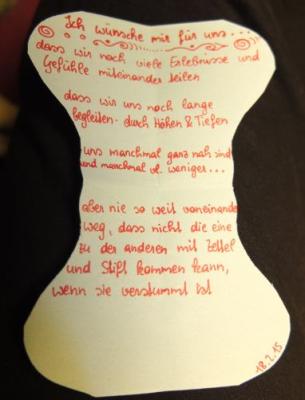 Ich wünsche mir für uns...
dass wir noch viele Erlebnisse und
Gefühle miteinander teilen
dass wir uns noch lange
begleiten - durch Höhen & Tiefen
uns manchmal ganz nah sind
und manchmal vl. weniger...
aber nie so weit voneinander
weg, dass nicht die eine
zu der anderen mit Zettel
und Stift kommen kann,
wenn sie verstummt ist
18.2.15